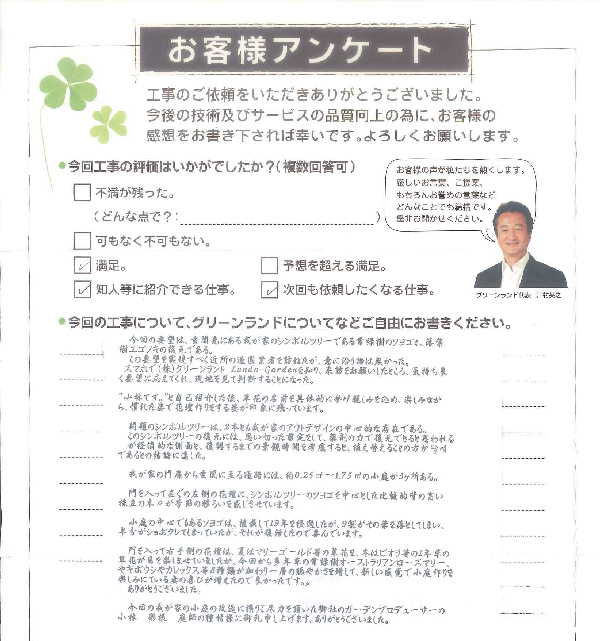 お客様アンケート
工事のご依頼をいただきありがとうございました。
今後の技術及びサービスの品質向上の為に、お客様の
感想をお書き下されば幸いです。よろしくお願いします。
●今回工事の評価はいかがでしたか？（複数回答可）
お客様の声が私たちを動くします。
厳しいお言葉、ご提案、
もちろんお誉めの言葉など
どんなことでも結構です。
是非お聞かせください。
不満が残った。
（どんな点で？：　）
可もなく不可もない。
満足。
予想を超える満足。
知人等に紹介できる仕事。
次回も依頼したくなる仕事。
グリーンランド代表
●今回の工事について、グリーンランドについてなどご自由にお書きください。
今回の要望は、玄関先にある我が家のシンボルツリーである常緑樹のソヨゴと、落葉
樹エゴノキの復元である。
この要望を実現すべく近所の造園業者を訪ねたが、意に沿う物は無かった。
スマホで(株)グリーンランド Lundo-Gardenを知り、来訪をお願いしたところ、気持ち良
く要望に応えてくれ、現地を見て判断することになった。
"小林です。"と自己紹介した後、草花の名前を具体的に挙げ親しみを込め、楽しみなが
ら、慣れた姿で花壇作りをする姿が印象に残っています。
問題のシンボルツリーは、2本とも我が家のアウトデザインの中心的な存在である。
このシンボルツリーの復元には、思い切った剪定をして、薬剤の力で復元できると思われる
が経済的な側面と、復調するまでの景観時間を考慮すると、植え替えることの方が
であるとの結論に達した。
我が家の門扉から玄関に至る通路には、約0.25㎡～1.75㎡の小庭が3ヶ所ある。
門を入って直ぐの左側の花壇に、シンボルツリーのソヨゴを中心とした比較的背の高い
株立の木々が季節の移ろいを感じさせています。
小庭の中心でもあるソヨゴは、植栽して19年を経過したが、9割がその葉を落としてしまい、
半分がショボクレてしまっていたが、それが復活したので喜んでいます。
門を入って右手側の花壇は、夏はマリーゴールド等の草花を、冬はビオラ等の1年草の
草花が目を楽しませていましたが、今回から多年草の常緑樹オーストラリアンローズマリー、
ヤナギボウシやカレックス等6種類が加わり一層の賑やかさを増して、新しい感覚で小庭作りを
楽しみにている妻の喜びが増えたので良かったです。
ありがとうございました。
今回の我が家の小庭の改造に携りご尽力を頂いた御社のガーデンプロデューサーの
小林　彩様　庭師の種村様に御礼申し上げます。ありがとうございました。